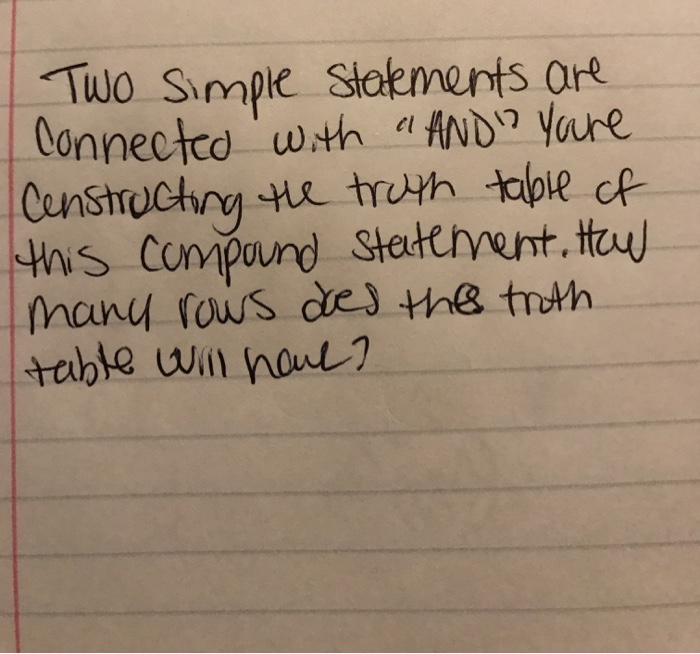 Two Simple Statements are
Connected with "AND" Youre
Constructing the truth table of
this Compound Statement. How
many rows does the truth
table will have?